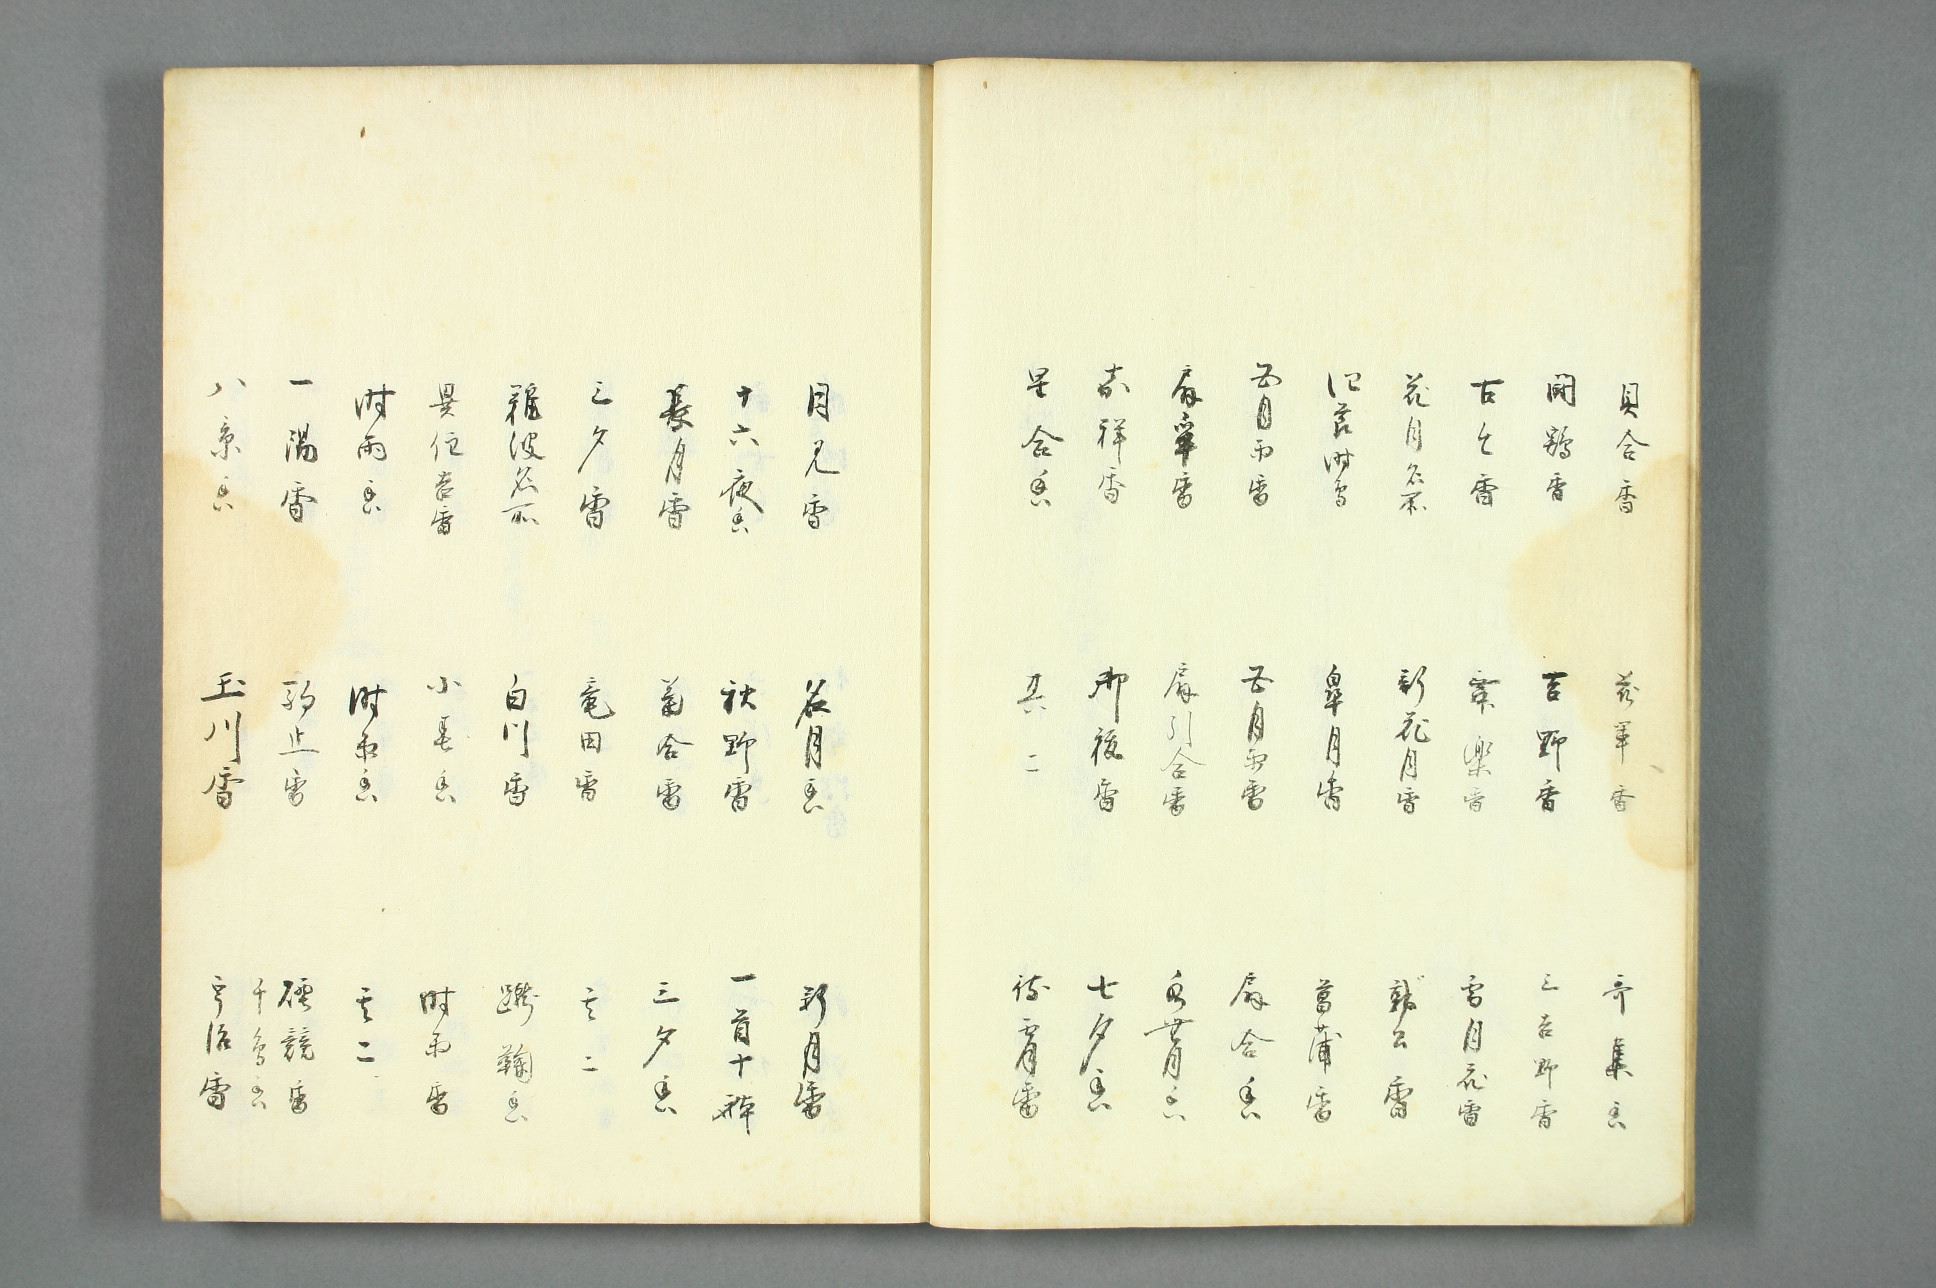 貝合香
花軍香
哥集香
闘鶏香
吉野香
三吉野香
古今香
舞楽香
雪月花香
花月名所
新花月香
郭公香
時鳥
皐月香
菖蒲香
五月雨香
五月雨香
扇合香
扇争香
扇引合香
水無月香
嘉祥香
御祓香
七夕香
星合香
其二
待宵香
月見香
名月香
新月香
十六夜香
秋野香
一首十体
長月香
菊合香
三夕香
三夕香
竜田香
其二
難波名所
白川香
蹴鞠香
異住吉香
小鳥香
時雨香
時雨香
時雨香
其二
一陽香
駒止香
煙競香
千鳥香
八景香
玉川香
宇治香